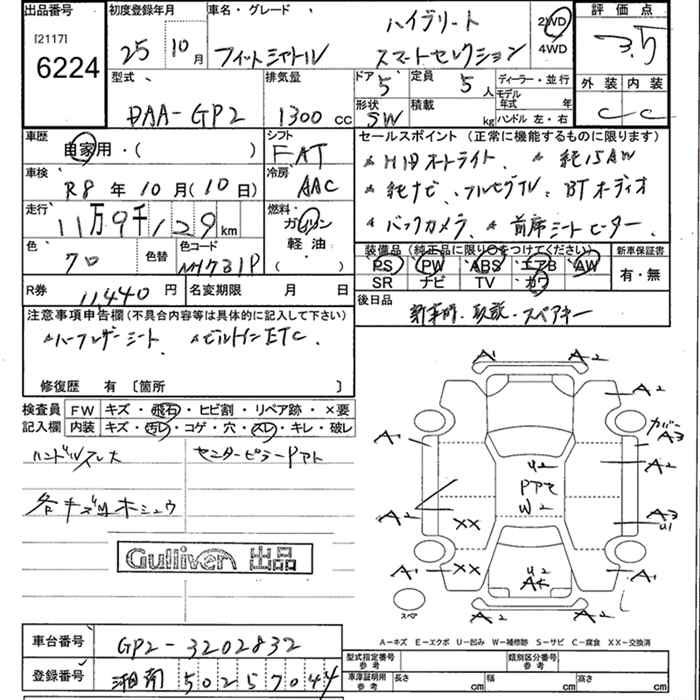 出品番号 初度登録年月 車名・グレード 評価点
[2117] 6224
25年 10月 フィットシャトル ハイブリッド スマートセレクション 2WD 4WD 3.5
型式 排気量 ドア 5 定員 5人 ディーラー・並行 外装 内装
DAA-GP2 1300cc 形状 SW 積載 kg モデル年式 年 ハンドル 左・右 C C
車歴 シフト セールスポイント (正常に機能するものに限ります)
自家用・( ) FAT
車検 冷房
R8年10月(10日) AAC
HIDオートライト、 純15AW
純ナビ、フルセグTV、BTオーディオ
バックカメラ、 前席シートヒーター、
走行 燃料
11万9千129km ガソリン 軽油 ( )
色 色替 色コード
クロ NH731P
装備品 (純正品に限り○をつけてください) 新車保証書
PS PW ABS エアB AW 有・無
SR ナビ TV カワ
R券 11440円 名変期限 月 日
後日品
スペアキー
注意事項申告欄(不具合内容等は具体的に記入して下さい)
ハーフレザーシート、 ビルトインETC、
修復歴 有 〔箇所 〕
検査員 FW キズ・飛石・ヒビ割・リペア跡・×要
記入欄 内装 キズ・汚レ・コゲ・穴・スレ・キレ・破レ
ハンドルスレ大 センターピラーPアト
各キズ凹 ホシュウ
A1 A2
A2
A1 カバーA3
U2 A2
PPセ
W2 A3
U1
A2 XX
A1 XX U2 A1
AK
A2 A2
スペア
Gulliver 出品
A-キズ E-エクボ U-凹み W-補修跡 S-サビ C-腐食 XX-交換済
車台番号 GP2-3202832
登録番号 湘南 502 57044
型式指定番号 参考 類別区分番号 参考
車庫証明用 参考 長さ cm 幅 cm 高さ cm